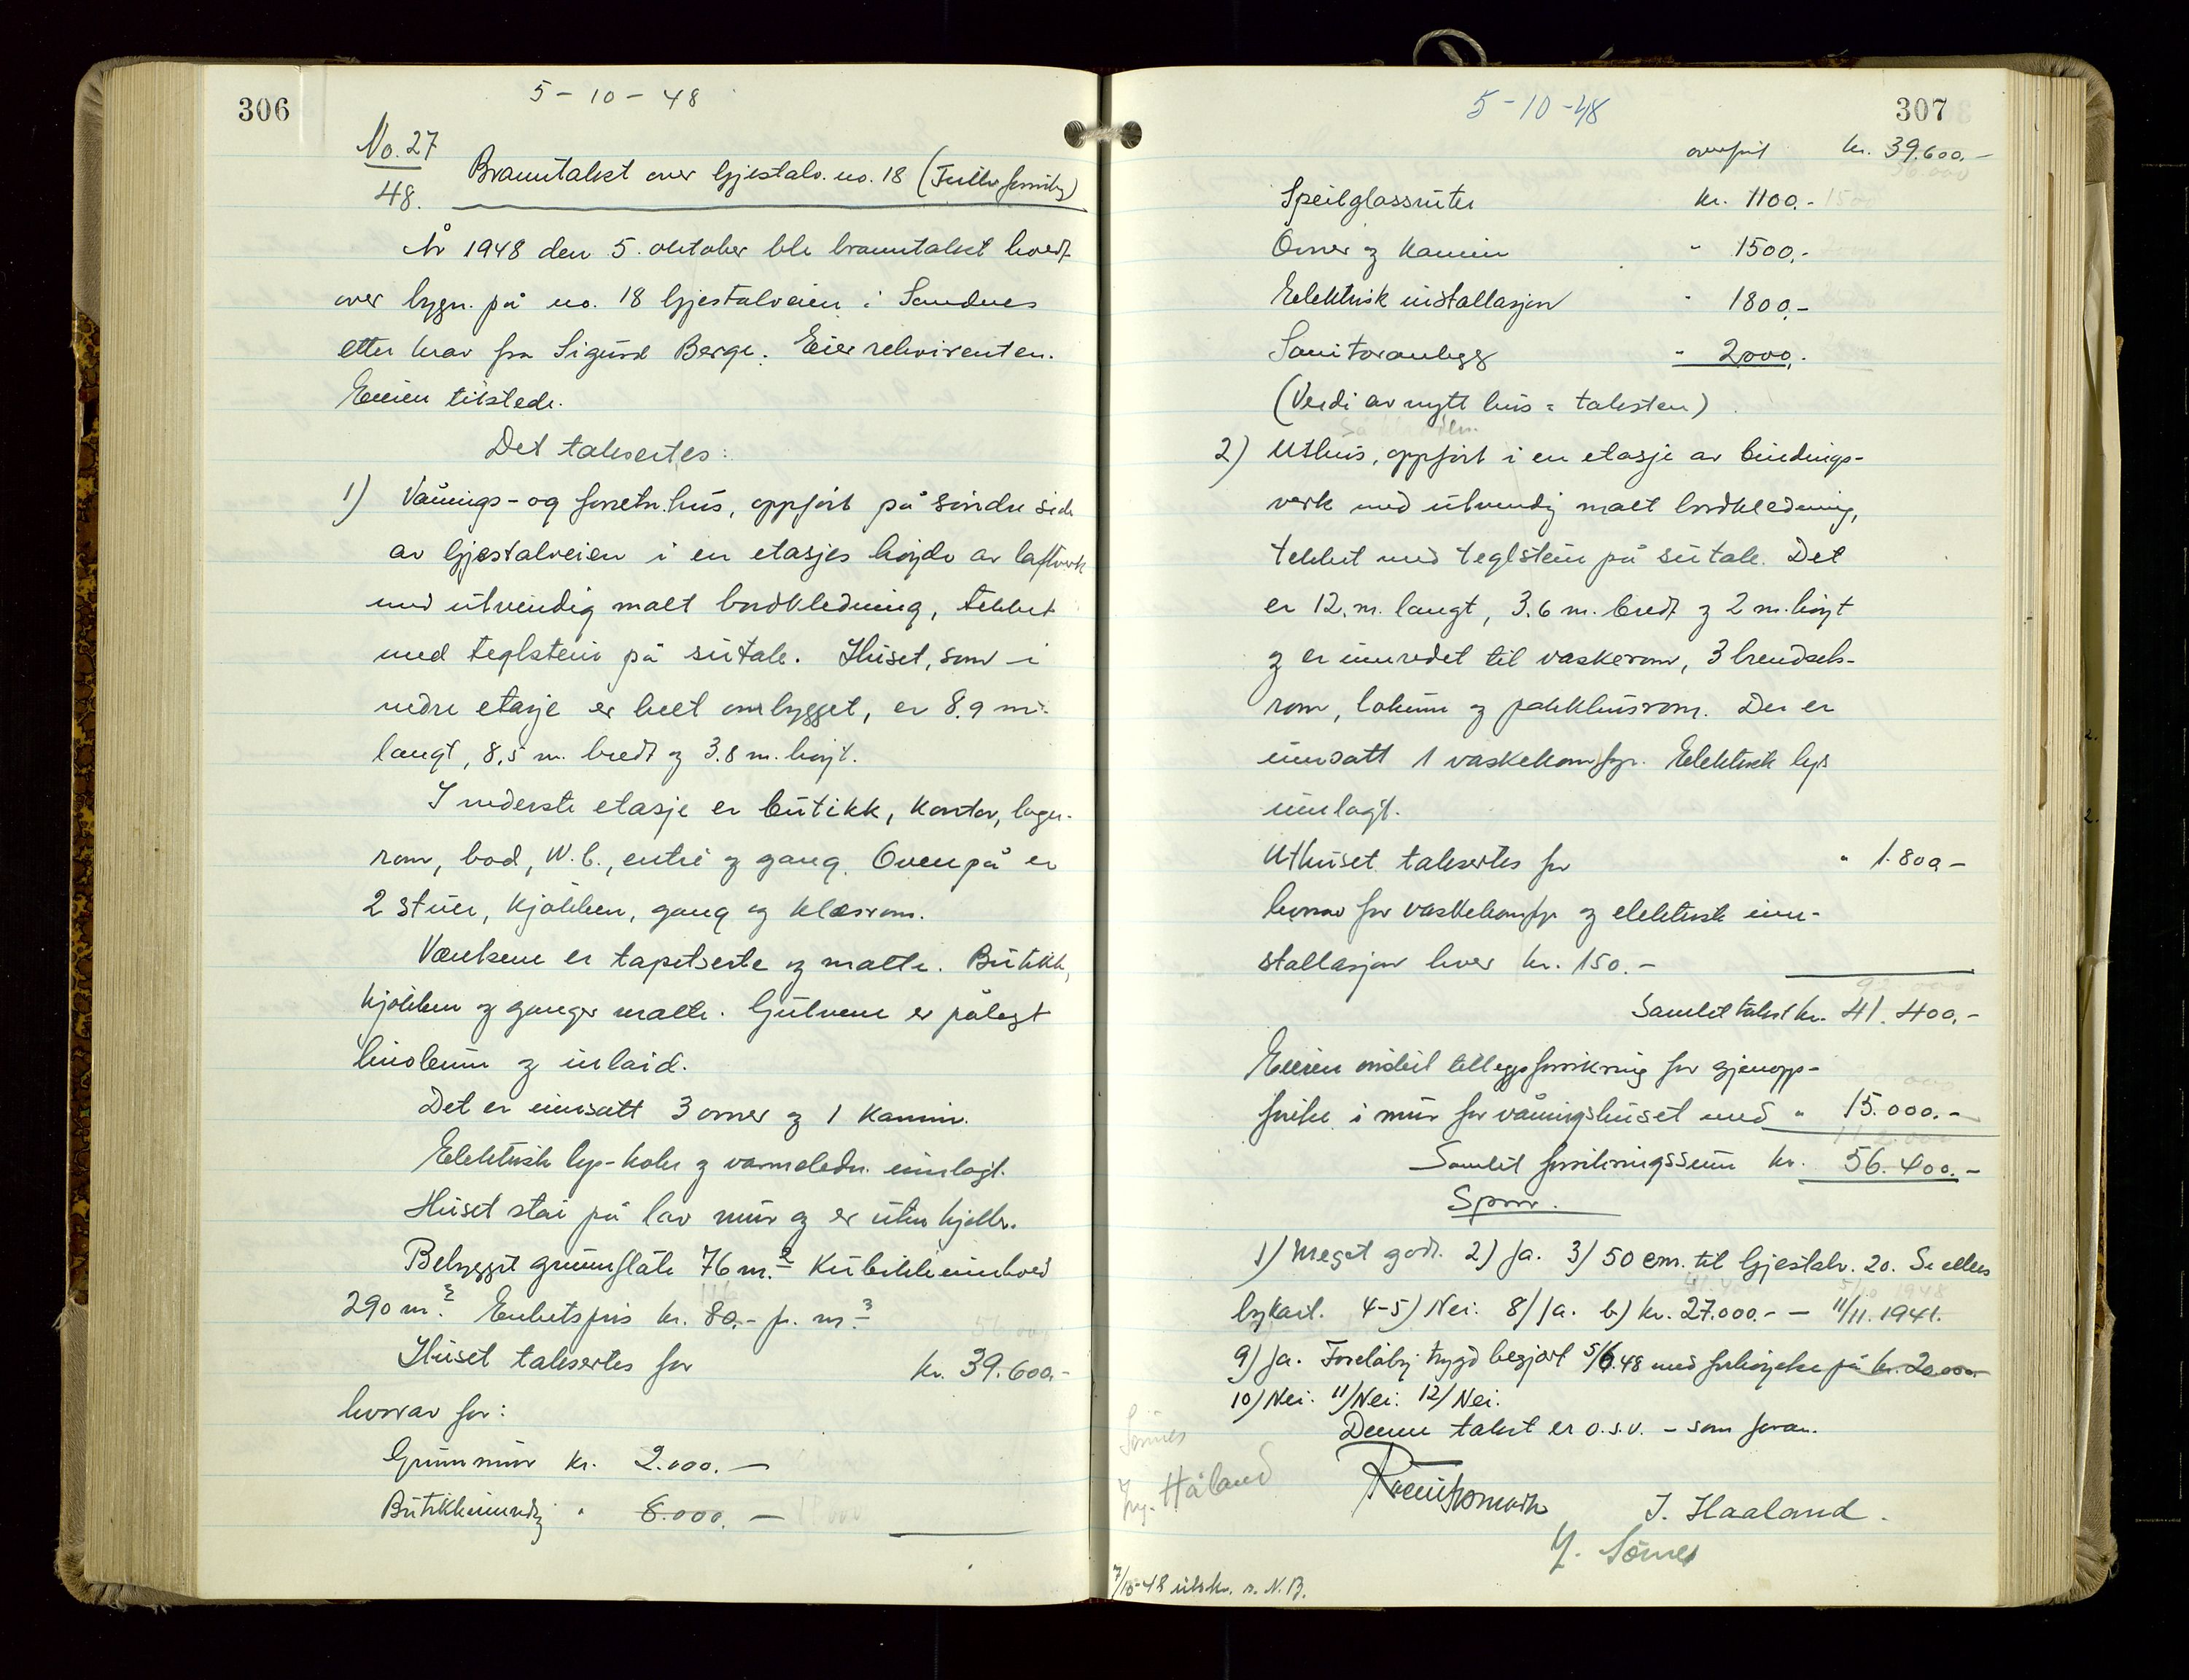 306
5-10-48
No. 27
48.
Branntakst over Gjestalv. no. 18 (Full forsikring)
År 1948 den 5. oktober ble branntakst hvedt
over bygn. på no. 18 Gjestalveien i Sandnes
etter krav fra Sigurd Berge. Eier rekvirenten.
Eieren tilstede.
Det takseertes:
1) Vånings- og forretn.hus, oppført på søndre side
av Gjestalveien i en etasjes høyde av laftverk
med utvendig malt bordkledning, tekket
med teglstein på sutak. Huset, som i
nedre etasje er helt ombygget, er 8.9 m.
langt, 8,5 m. bredt og 3.8 m. høyt.
I nederste etasje er butikk, kontor, lager-
rom, bod, W.C., entré og gang. Ovenpå er
2 stuer, kjøkken, gang og klesrom.
Værelsene er tapetserte og malte. Butikk,
kjøkken og ganger malte. Gulvene er pålagt
linoleum og inlaid.
Det er innsatt 3 ovner og 1 kamin.
Elektrisk lys- koke og varmeledn. innlagt.
Huset står på lav mur og er uten kjeller.
Bebygget grunnflate 76 m.² Kubikkinnhold
290 m.³ Enhetspris kr. 80.- pr. m.³
Huset takseertes for kr. 39.600.-
hvorav for:
Grunnmur kr. 2.000.-
Butikkinnredn. " 8.000.-
5-10-48
307
overført kr. 39.600.-
Speilglassruter kr. 1100.-
Ovner og kamin " 1500.-
Elektrisk installasjon " 1800.-
Sanitæranlegg " 2000.
(Verdi av nytt hus = taksten)
2) Uthus, oppført i en etasje av bindings-
verk med utvendig malt bordkledning,
tekket med teglstein på sutak. Det
er 12. m. langt, 3.6 m. bredt og 2 m. høyt
og er innredet til vaskerom, 3 brendsels-
rom, lokum og pakkhusrom. Der er
innsatt 1 vaskekomfyr. Elektrisk lys
innlagt.
Uthuset takseertes for " 1.800.-
hvorav for vaskekomfyr og elektrisk inn-
stallasjon hver kr. 150.-
Samlet takst kr. 41.400.-
Eieren ønsket tilleggsforsikring for gjenopp-
førelse i mur for våningshuset med " 15.000.-
Samlet forsikringssum kr. 56.400.-
Spm.
1) Meget godt. 2) Ja. 3) 50 cm. til Gjestalv. 20. Se ellers
bykart. 4-5) Nei. 8) Ja. b) kr. 27.000.- - 11/11.1941.
9) Ja. Foreløbig trygd begjært 5/6.48 med forhøyelse på kr. 20.000.-
10) Nei. 11) Nei. 12) Nei.
Denne takst er o.s.v. - som foran.
Sömes
Håland
J. Haaland.
Y. Sömes
7/10-48 utskr. s. N.B.